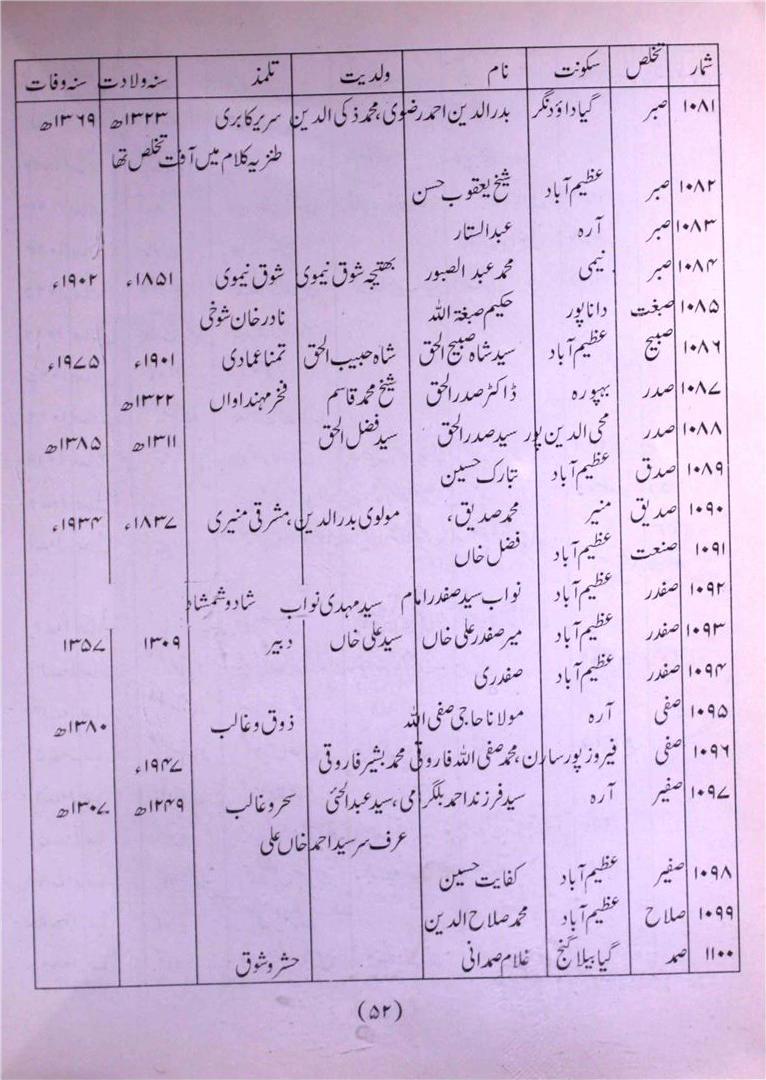 شمار تخلص سکونت نام ولدیت تلمذ سنہ ولادت سنہ وفات
۱۰۸۱ صبر گیا داؤدنگر بدرالدین احمد رضوی، محمد ذکی الدین سریر کابری ۱۳۲۳ھ ۱۳۶۹ھ
طنزیہ کلام میں آفت تخلص تھا
۱۰۸۲ صبر عظیم آباد شیخ یعقوب حسن
۱۰۸۳ صبر آرہ عبدالستار
۱۰۸۴ صبر نیمی محمد عبدالصبور بھتیجہ شوق نیموی شوق نیموی ۱۸۵۱ء ۱۹۰۲ء
۱۰۸۵ صبغت داناپور حکیم صبغۃ اللہ نادر خان شوخی
۱۰۸۶ صبیح عظیم آباد سید شاہ صبیح الحق شاہ حبیب الحق تمنا عمادی ۱۹۰۱ء ۱۹۷۵ء
۱۰۸۷ صدر بہپورہ ڈاکٹر صدرالحق شیخ محمد قاسم فخر مہنداواں ۱۳۲۲ھ
۱۰۸۸ صدر محی الدین پور سید صدرالحق سید فضل الحق ۱۳۱۱ھ ۱۳۸۵ھ
۱۰۸۹ صدق عظیم آباد تبارک حسین
۱۰۹۰ صدیق منیر محمد صدیق، مولوی بدرالدین، مشرقی منیری ۱۸۳۷ء ۱۹۳۴ء
۱۰۹۱ صنعت عظیم آباد فضل خاں
۱۰۹۲ صفدر عظیم آباد نواب سید صفدر امام سید مہدی نواب شاد و شمشاد
۱۰۹۳ صفدر عظیم آباد میر صفدر علی خاں سید علی خاں دبیر ۱۳۰۹ ۱۳۵۷
۱۰۹۴ صفدر عظیم آباد صفدری
۱۰۹۵ صفی آرہ مولانا حاجی صفی اللہ ذوق و غالب ۱۳۸۰ھ
۱۰۹۶ صفی فیروزپور سارن، محمد صفی اللہ فاروقی محمد بشیر فاروقی ۱۹۴۷ء
۱۰۹۷ صفیر آرہ سید فرزند احمد بلگرامی، سید عبدالحئی سحر و غالب ۱۲۴۹ھ ۱۳۰۷ھ
عرف سر سید احمد خاں علی
۱۰۹۸ صفیر عظیم آباد کفایت حسین
۱۰۹۹ صلاح عظیم آباد محمد صلاح الدین
۱۱۰۰ صمد گیا بیلا گنج غلام صمدانی حشر و شوق
(۵۲)